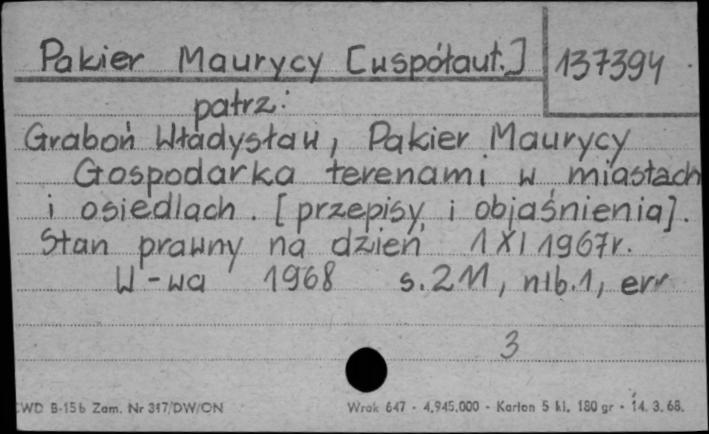 Pakier Maurycy [współaut.] 137394
patrz:
Graboń Władysław, Pakier Maurycy
Gospodarka terenami w miastach
i osiedlach. [przepisy i objaśnienia].
Stan prawny na dzień 1 XI 1967r.
W-wa 1968 s.211, nlb.1, err
3
CWD B-15b Zam. Nr 317/DW/ON Wrak 647 - 4.945.000 - Karton 5 kl. 180 gr - 14. 3. 68.